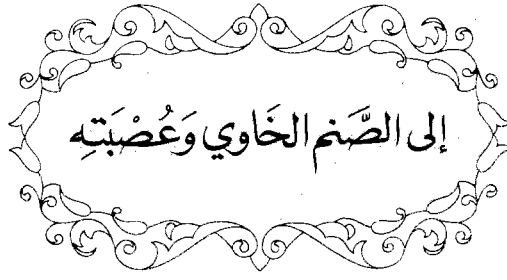 إلى الصَّنم الخَاوي وَعُصْبَتِه